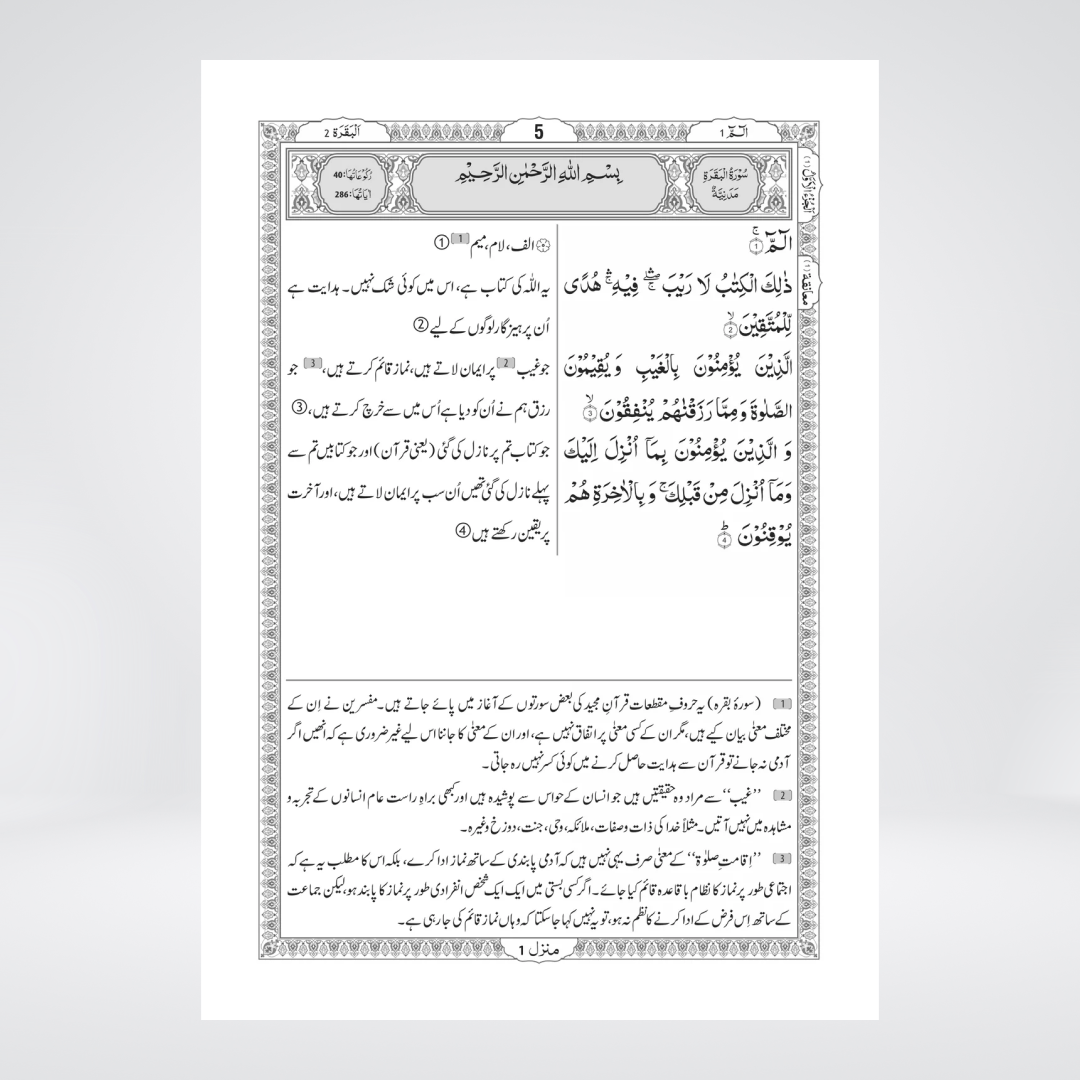 الٓمّٓ 1
5
اَلْبَقَرَة 2
اَلْجُزْءُ الْاَوَّلُ (۱)
معانقة (۱)
سُوْرَةُ الْبَقَرَةِ
مَدَنِيَّةٌ
بِسْمِ اللّٰهِ الرَّحْمٰنِ الرَّحِيْمِ
رُكُوْعَاتُهَا: 40
اٰيَاتُهَا: 286
الٓمّٓ ۚ 1
ذٰلِكَ الْكِتٰبُ لَا رَيْبَ ۛۖ فِيْهِ ۛۚ هُدًى
لِّلْمُتَّقِيْنَ ۙ 2
الَّذِيْنَ يُؤْمِنُوْنَ بِالْغَيْبِ وَيُقِيْمُوْنَ
الصَّلٰوةَ وَمِمَّا رَزَقْنٰهُمْ يُنْفِقُوْنَ ۙ 3
وَ الَّذِيْنَ يُؤْمِنُوْنَ بِمَآ اُنْزِلَ اِلَيْكَ
وَمَآ اُنْزِلَ مِنْ قَبْلِكَ ۚ وَ بِالْاٰخِرَةِ هُمْ
يُوْقِنُوْنَ ؕ 4
۞ الف، لام، میم 1 ①
یہ اللہ کی کتاب ہے، اس میں کوئی شک نہیں۔ ہدایت ہے
اُن پرہیزگار لوگوں کے لیے ②
جو غیب 2 پر ایمان لاتے ہیں، نماز قائم کرتے ہیں، 3 جو
رزق ہم نے اُن کو دیا ہے اُس میں سے خرچ کرتے ہیں، ③
جو کتاب تم پر نازل کی گئی (یعنی قرآن) اور جو کتابیں تم سے
پہلے نازل کی گئی تھیں اُن سب پر ایمان لاتے ہیں، اور آخرت
پر یقین رکھتے ہیں ④
1 (سورۂ بقرہ) یہ حروفِ مقطعات قرآنِ مجید کی بعض سورتوں کے آغاز میں پائے جاتے ہیں۔ مفسرین نے اِن کے
مختلف معنٰی بیان کیے ہیں، مگر ان کے کسی معنٰی پر اتفاق نہیں ہے، اور ان کے معنٰی کا جاننا اس لیے غیر ضروری ہے کہ انھیں اگر
آدمی نہ جانے تو قرآن سے ہدایت حاصل کرنے میں کوئی کسر نہیں رہ جاتی۔
2 ’’غیب‘‘ سے مراد وہ حقیقتیں ہیں جو انسان کے حواس سے پوشیدہ ہیں اور کبھی براہِ راست عام انسانوں کے تجربہ و
مشاہدہ میں نہیں آتیں۔ مثلاً خدا کی ذات و صفات، ملائکہ، وحی، جنت، دوزخ وغیرہ۔
3 ’’اِقامتِ صلوٰۃ‘‘ کے معنٰی صرف یہی نہیں ہیں کہ آدمی پابندی کے ساتھ نماز ادا کرے، بلکہ اس کا مطلب یہ ہے کہ
اجتماعی طور پر نماز کا نظام باقاعدہ قائم کیا جائے۔ اگر کسی بستی میں ایک ایک شخص انفرادی طور پر نماز کا پابند ہو، لیکن جماعت
کے ساتھ اِس فرض کے ادا کرنے کا نظم نہ ہو، تو یہ نہیں کہا جاسکتا کہ وہاں نماز قائم کی جارہی ہے۔
منزل 1